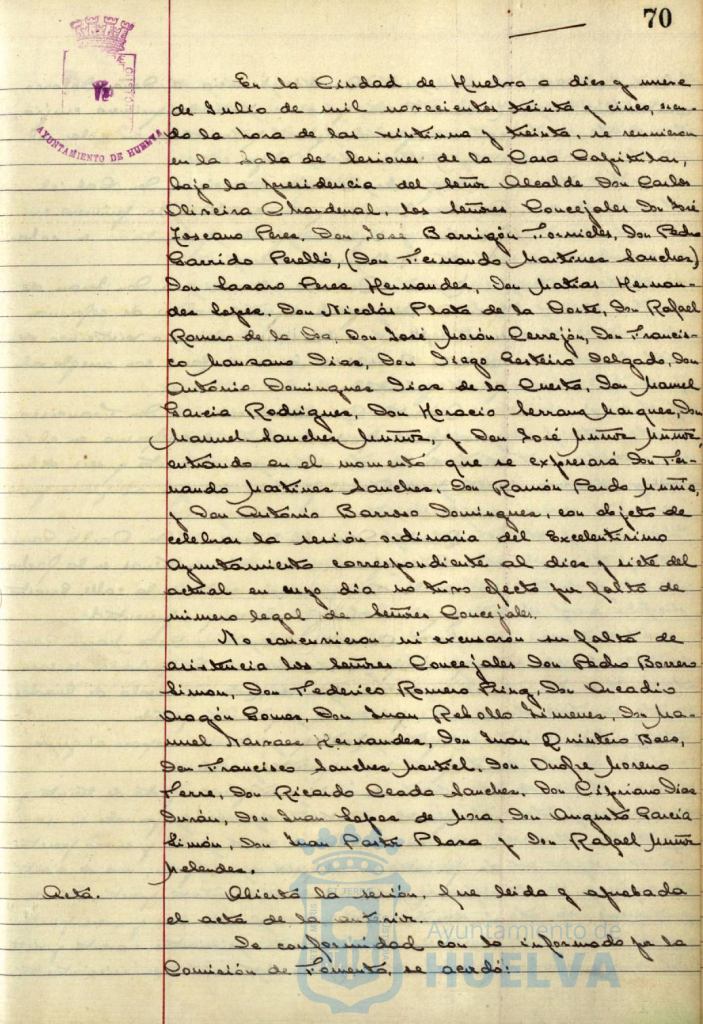 70
AYUNTAMIENTO DE HUELVA
En la Ciudad de Huelva a diez y nueve
de Julio de mil novecientos treinta y cinco, sien-
do la hora de las veintiuna y treinta, se reunieron
en la Sala de Sesiones de la Casa Capitular,
bajo la presidencia del Señor Alcalde Don Carlos
Oliveira Chardenal, los Señores Concejales Don José
Toscano Perez, Don José Barrigón Fornieles, Don Pedro
Garrido Perelló, (Don Fernando Martinez Sanchez)
Don Lazaro Perez Hernandez, Don Matias Hernan-
dez Lopez, Don Nicolás Plata de la Corte, Don Rafael
Romero de la Osa, Don José Morón Cerrejón, Don Francis-
co Manzano Diaz, Don Diego Delgado, Don
Antonio Dominguez Diaz de la Cuesta, Don Manuel
Garcia Rodriguez, Don Horacio Serrano Marquez, Don
Manuel Sanchez Muñoz, y Don José Muñoz Muñoz,
entrando en el momento que se expresará Don Fer-
nando Martinez Sanchez, Don Ramón Pardo
y Don Antonio Barroso Dominguez, con objeto de
celebrar la sesión ordinaria del Excelentísimo
Ayuntamiento correspondiente al diez y siete del
actual en cuyo dia no tuvo efecto por falta de
número legal de Señores Concejales.
No concurrieron ni excusaron su falta de
asistencia los Señores Concejales Don Pedro Borrero
Limon, Don Federico Romero Don Arcadio
Aragón Gomez, Don Juan Rebollo Jimenez, Don Ma-
nuel Narvaez Hernandez, Don Juan Quintero Baez,
Don Francisco Sanchez Don Onofre Moreno
Don Ricardo Ceada Sanchez, Don Cipriano Diaz
Durán, Don Juan Lopez de Mora, Don Augusto Garcia
Limón, Don Juan Plaza y Don Rafael Muñoz
Melendez.
Acta. Abierta la sesión, fue leida y aprobada
el acta de la anterior.
De conformidad con lo informado por la
Comisión de Fomento, se acordó:
Ayuntamiento de
HUELVA